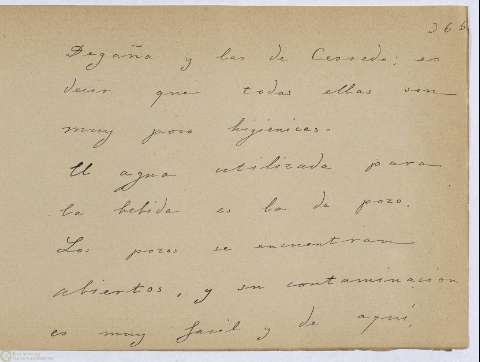 366
Degaña y las de Cerredo: es
decir que todas ellas son
muy poco higiénicas.
El agua utilizada para
la bebida es la de pozo.
Los pozos se encuentran
abiertos, y su contaminacion
es muy facil y de aquí,